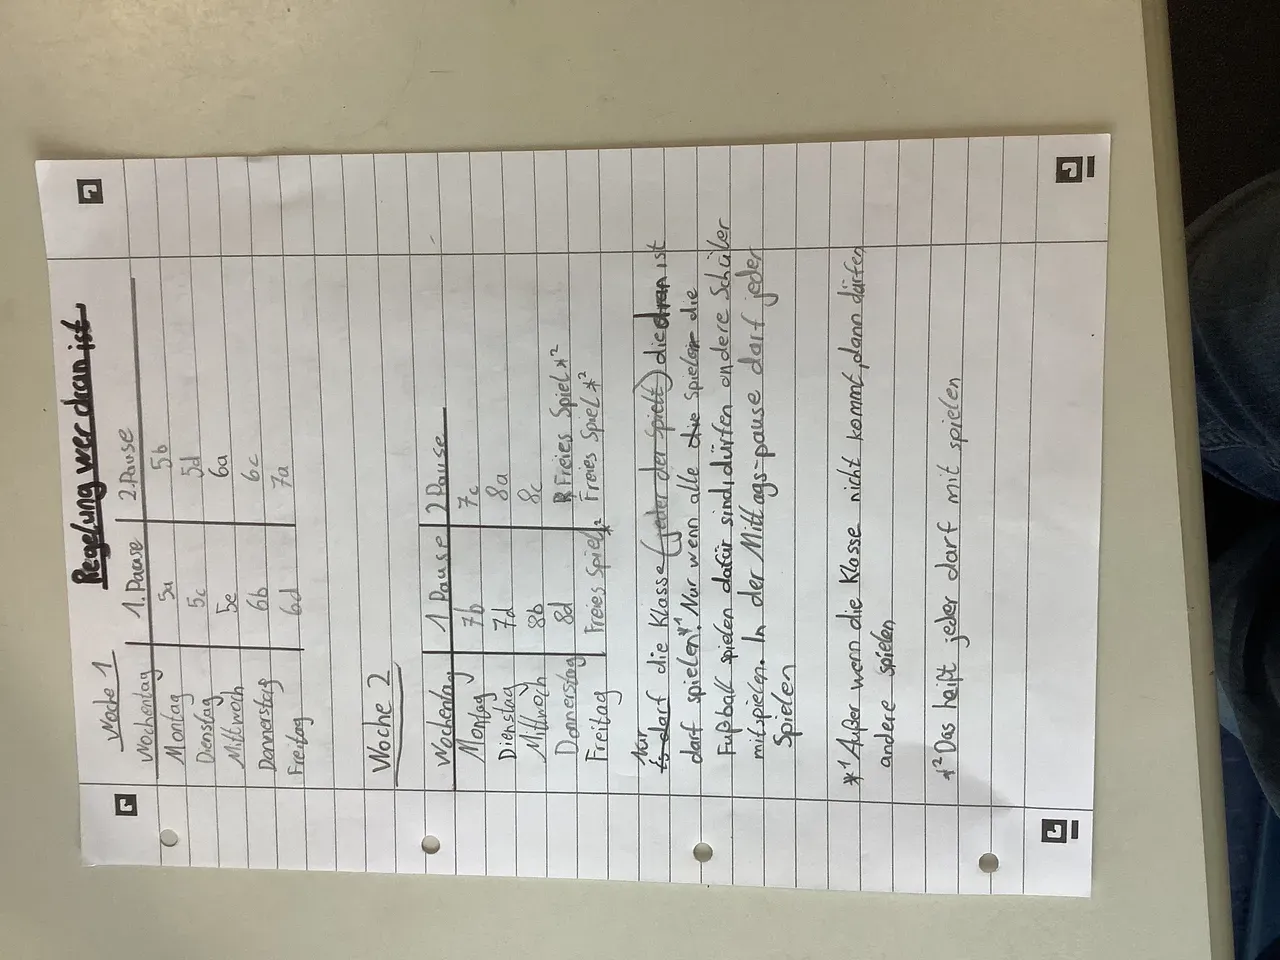 Regelung wer dran ist
Woche 1
Wochentag 1. Pause 2. Pause
Montag 5a 5b
Dienstag 5c 5d
Mittwoch 5e 6a
Donnerstag 6b 6c
Freitag 6d 7a
Woche 2
Wochentag 1 Pause 2 Pause
Montag 7b 7c
Dienstag 7d 8a
Mittwoch 8b 8c
Donnerstag 8d Freies Spiel *2
Freitag Freies Spiel *2 Freies Spiel *2
Nur darf die Klasse (jeder der spielt) die dran ist
darf spielen.*1 Nur wenn alle die Spielen die
Fußball spielen dafür sind, dürfen andere Schüler
mitspielen. In der Mittags-pause darf jeder
Spielen
*1 Außer wenn die Klasse nicht kommt, dann dürfen
andere spielen
*2 Das heißt jeder darf mit spielen